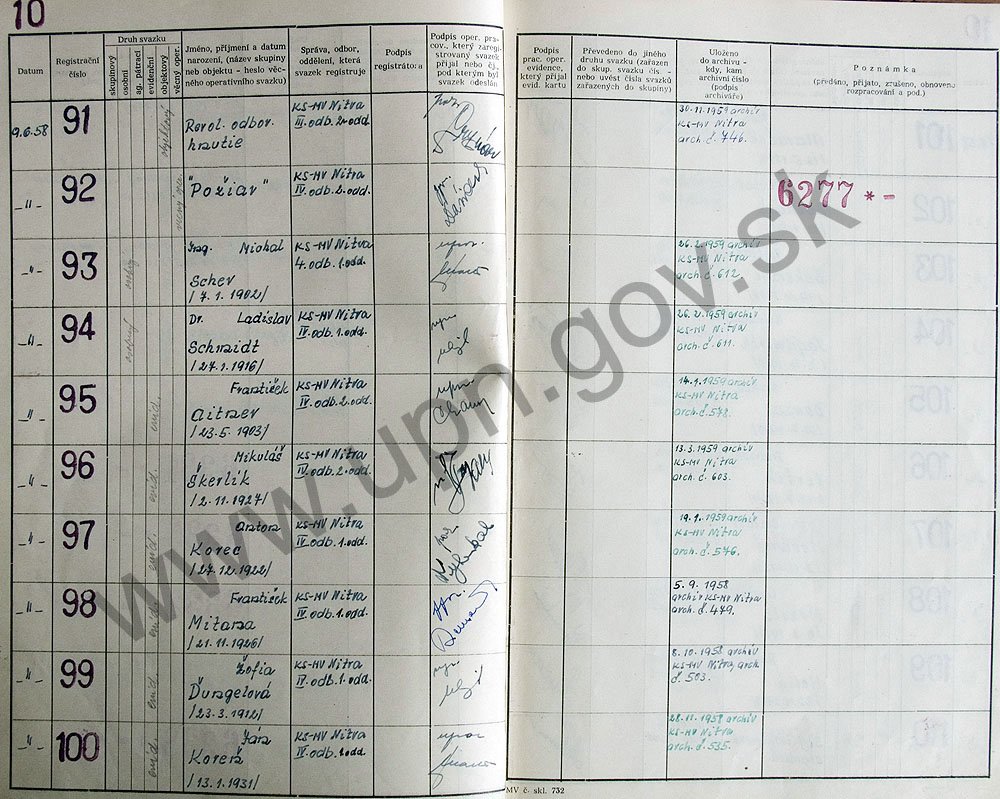 10
Datum
Registrační číslo
Druh svazku
skupinový
osobní
ag. pátrací
evidenční
objektový
věcný oper.
Jméno, příjmení a datum
narození, (název skupiny
neb objektu - heslo věc-
ného operativního svazku)
Správa, odbor,
oddělení, která
svazek registruje
Podpis
registrátora
Podpis oper. pra-
cov., který zareg-
istrovaný svazek
přijal nebo čj.,
pod kterým byl
svazek odeslán
Podpis
prac. oper.
evidence,
který přijal
evid. kartu
Převedeno do jiného
druhu svazku (zařazen
do skup. svazku čís. -
nebo uvést čísla svazků
zařazených do skupiny)
Uloženo
do archivu -
kdy, kam
archivní číslo
(podpis
archiváře)
Poznámka
(předáno, přijato, zrušeno, obnoveno
rozpracování a pod.)
9.6.58
91
objektový
Revol. odbor.
hnutie
KS-MV Nitra
III. odb. 2. odd.
30.11.1959 archív
KS-MV Nitra
arch. č. 746.
-"-
92
"Požiar"
KS-MV Nitra
IV. odb. 2. odd.
6277 *-
-"-
93
Ing. Michal
Scher
/7.1.1902/
KS-MV Nitra
4. odb. 1. odd.
26.2.1959 archív
KS-MV Nitra
arch. č. 612.
-"-
94
Dr. Ladislav
Schmidt
/27.1.1916/
KS-MV Nitra
IV. odb. 1. odd.
26.2.1959 archív
KS-MV Nitra
arch. č. 611.
-"-
95
evid.
František
Aitner
/23.5.1903/
KS-MV Nitra
IV. odb. 2. odd.
14.1.1959 archív
KS-MV Nitra
arch. č. 578.
-"-
96
evid.
Mikuláš
Škerlík
/2.11.1927/
KS-MV Nitra
IV. odb. 2. odd.
13.3.1959 archív
KS-MV Nitra
arch. č. 603.
-"-
97
evid.
Anton
Korec
/27.12.1922/
KS-MV Nitra
IV. odb. 1. odd.
19.1.1959 archív
KS-MV Nitra
arch. č. 576.
-"-
98
evid.
František
Mitana
/21.11.1926/
KS-MV Nitra
IV. odb. 1. odd.
5.9.1958
archív KS-MV Nitra
arch. č. 479.
-"-
99
evid.
Žofia
Ďurgelová
/23.3.1912/
KS-MV Nitra
IV. odb. 1. odd.
8.10.1958 archív
KS-MV Nitra arch.
č. 503.
-"-
100
evid.
Ján
Koreň
/13.1.1931/
KS-MV Nitra
IV. odb. 1. odd
28.11.1958 archív
KS-MV Nitra
arch. č. 535.
MV č. skl. 732
www.upn.gov.sk